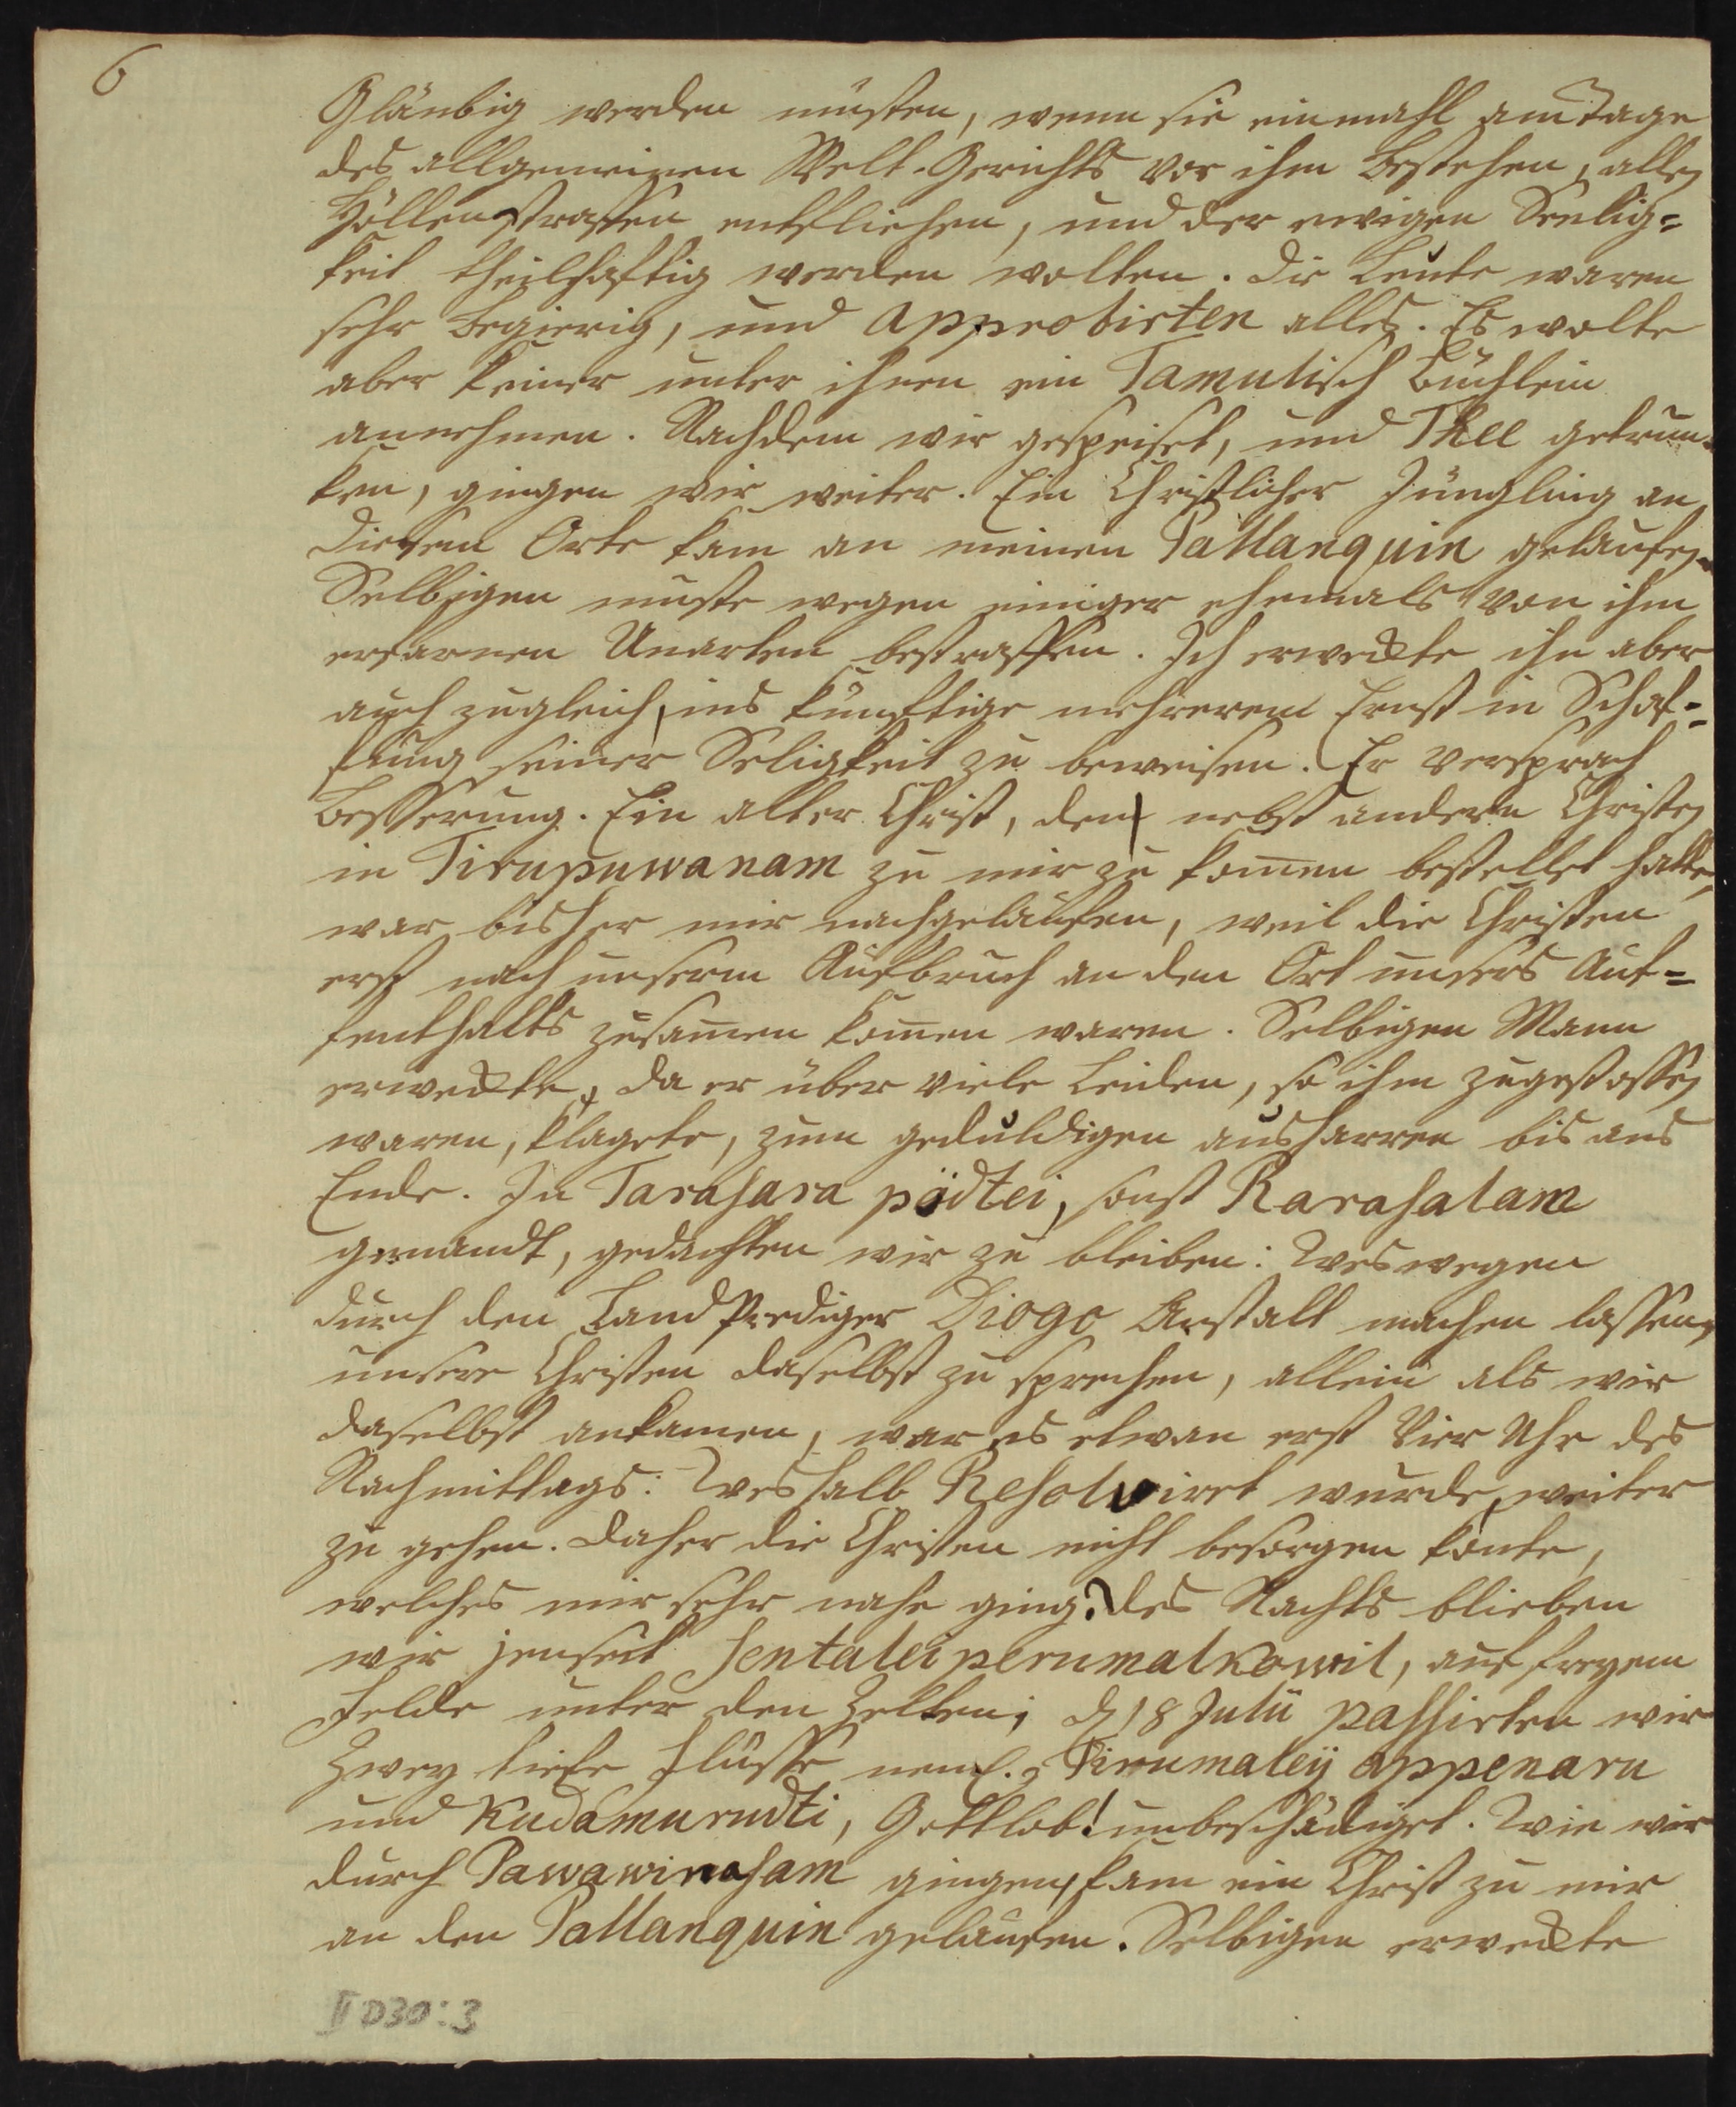 6
Gläubig werden müsten, wenn sie einmahl am Tage
des allgemeinen Welt-Gerichts vor ihm bestehen, allen
Höllenstraffen entfliehen, und der ewigen Seelig=
keit theilhafftig werden wolten. Die Leute waren
sehr begierig, und approbirten alles. Es wolte
aber keiner unter ihnen ein Tamulisch Büchlein
annehmen. Nachdem wir gespeiset, und Thee getrun-
ken, gingen wir weiter. Ein Christlicher Jüngling an
diesem Orte kam an meinen Pallanquin gelaufen.
Selbigen muste wegen einiger ehemals von ihm
erfarnen Unarten bestraffen. Ich erweckte ihn aber
auch zugleich, ins künfftige mehrerem Ernst in Schaf=
fung seiner Seligkeit zu beweisen. Er versprach
Besserung. Ein alter Christ, den nebst andern Christen
in Tirupuwanam zu mir zu komen bestellet hatte,
war bisher mir nachgelaufen, weil die Christen
erst nach unserm Aufbruch an den Ort unsers Auf=
fenthalts zusamen komen waren. Selbigen Mann
erweckte, da er über viele Leiden, so ihm zugestossen
waren, klagete, zum geduldigen ausharren bis ans
Ende. In Tarasara pädtei, sonst Rarasalam
genandt, gedachten wir zu bleiben: Weswegen
durch den Land Prediger Diogo Anstalt machen lassen,
unsere Christen daselbst zu sprechen, allein als wir
daselbst ankamen, war es etwan erst Vier Uhr des
Nachmittags: Weshalb Resolviret wurde, weiter
zu gehen. Daher die Christen nicht besorgen konte,
welches mir sehr nahe ging. Des Nachts blieben
wir jenseit Sentaleiperumalkowil, auf freyem
Felde unter den Zelten; d 18 Julii passirten wir
Zwey tiefe Flüsse neml. Tirumaleij appenaru
und Kudamurudti, Gottlob! unbeschädiget. Wie wir
durch Pawawinasam gingen, kam ein Christ zu mir
an den Pallanquin gelaufen. Selbigen erweckte
II D30:3